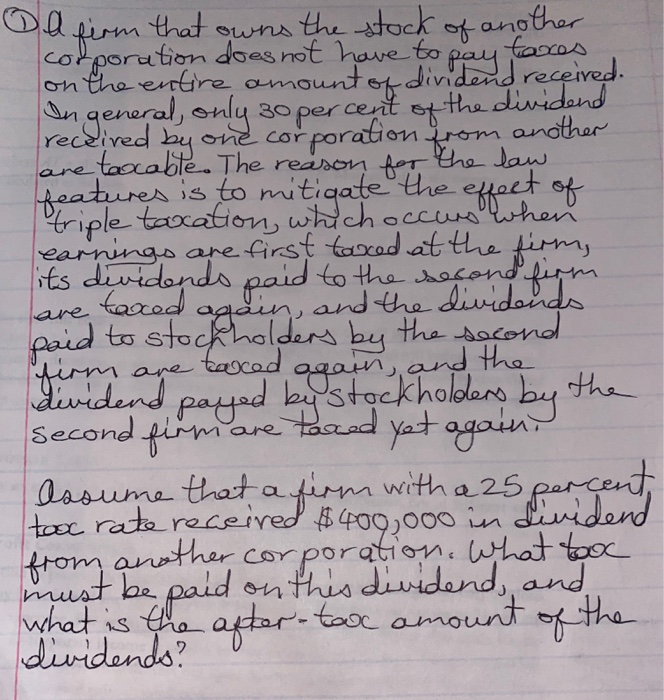 ① A firm that owns the stock of another
corporation does not have to pay taxes
on the entire amount of dividend received.
In general, only 30 per cent of the dividend
received by one corporation from another
are taxable. The reason for the law
features is to mitigate the effect of
triple taxation, which occurs when
earnings are first taxed at the firm,
its dividends paid to the second firm
are taxed again, and the dividends
paid to stockholders by the second
firm are taxed again, and the
dividend payed by stockholders by the
second firm are taxed yet again.
Assume that a firm with a 25 percent
tax rate received $400,000 in dividend
from another corporation. What tax
must be paid on this dividend, and
what is the after-tax amount of the
dividends?